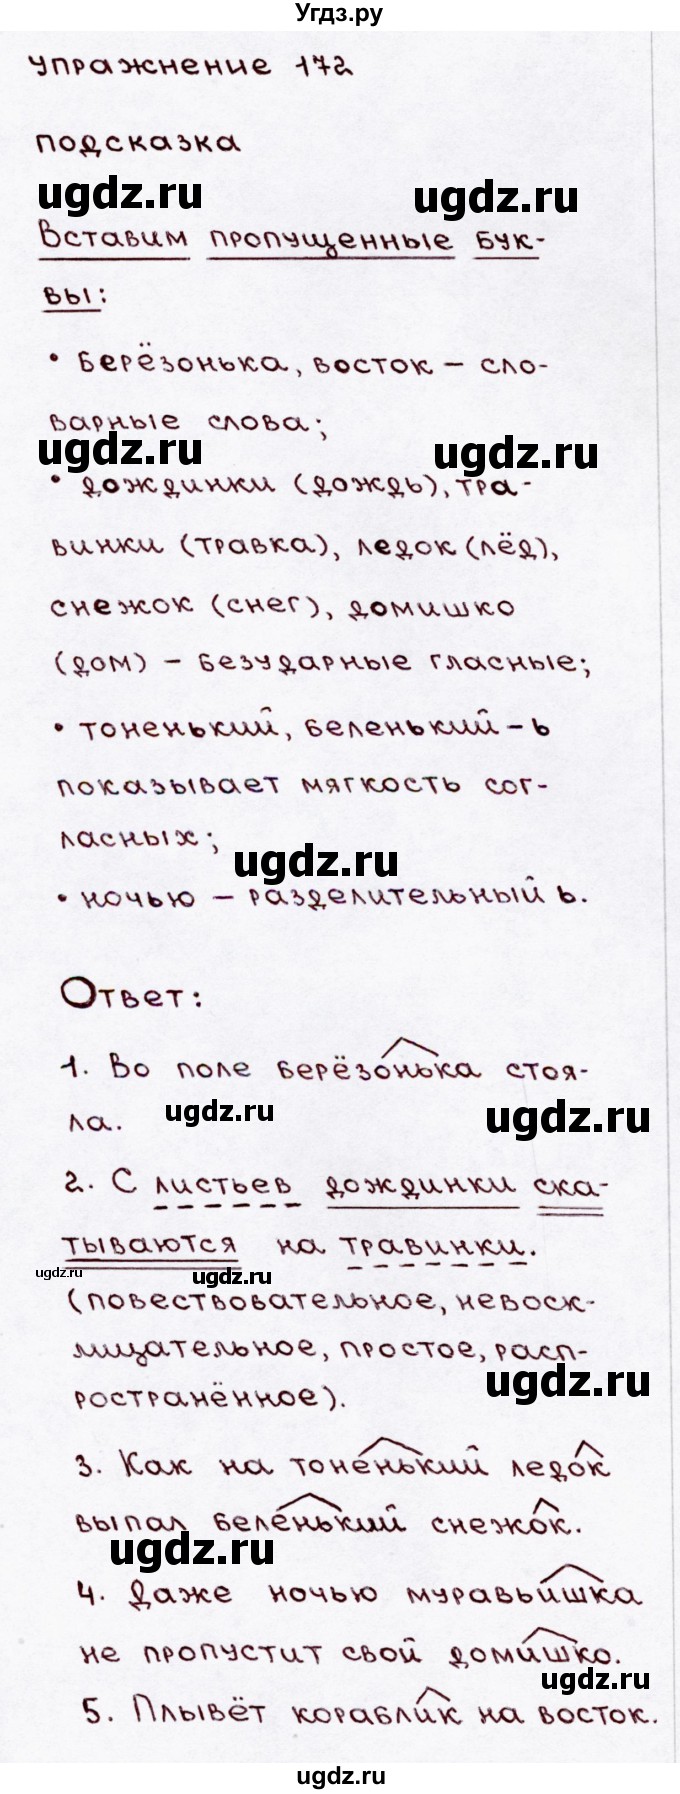 Угдз.ру
упражнение 172
подсказка
ugdz.ru ugdz.ru
Вставим пропущенные бук-
вы:
• берёзонька, восток – сло-
варные слова;
ugdz.ru ugdz.ru
• дождинки (дождь), тра-
винки (травка), ледок (лёд),
снежок (снег), домишко
(дом) – безударные гласные;
• тоненький, беленький – ь
показывает мягкость сог-
ласных;
ugdz.ru
• ночью – разделительный ь.
Ответ:
1. Во поле берёзонька стоя-
ла.
ugdz.ru ugdz.ru
2. С листьев дождинки ска-
тываются на травинки.
ugdz.ru ugdz.ru
(повествовательное, невоск-
лицательное, простое, расп-
ространённое).
ugdz.ru
3. Как на тоненький ледок
выпал беленький снежок.
ugdz.ru
4. Даже ночью муравьишка
не пропустит свой домишко.
ugdz.ru
5. Плывёт кораблик на восток.
ugdz.ru